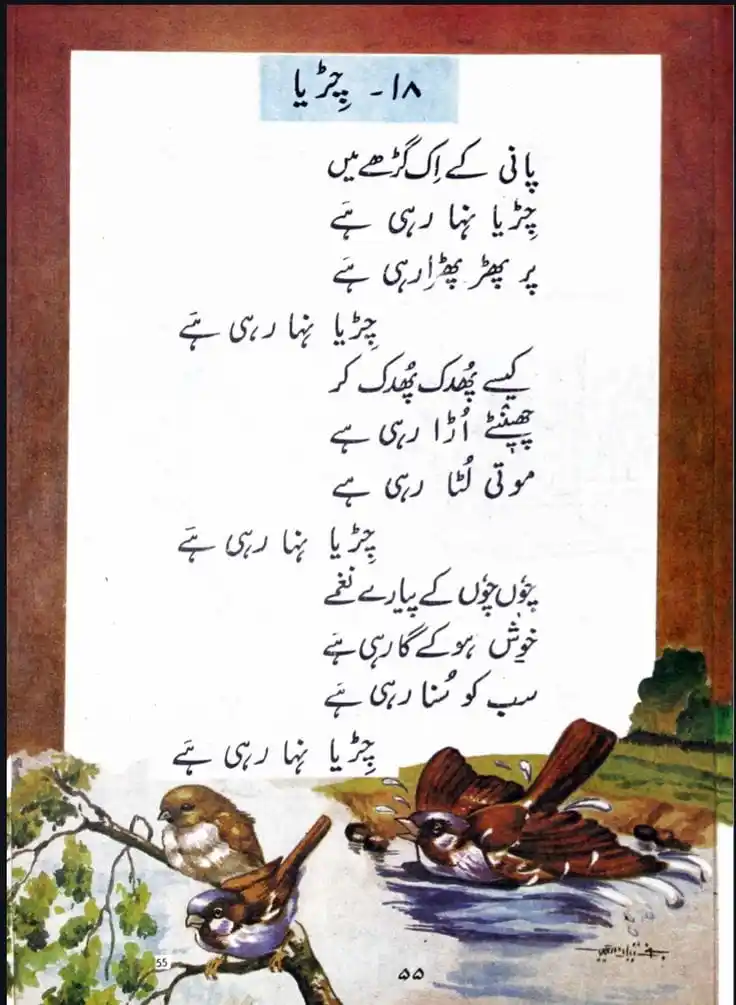 ۱۸ - چِڑیا
پانی کے اِک گڑھے میں
چِڑیا نہا رہی ہَے
پر پھڑ پھڑا رہی ہَے
چِڑیا نہا رہی ہَے
کیسے پُھدک پُھدک کر
چھینٹے اُڑا رہی ہے
موتی لُٹا رہی ہے
چِڑیا نہا رہی ہَے
چُوں چُوں کے پیارے نغمے
خوش ہو کے گا رہی ہَے
سب کو سُنا رہی ہَے
چِڑیا نہا رہی ہَے
55
۵۵